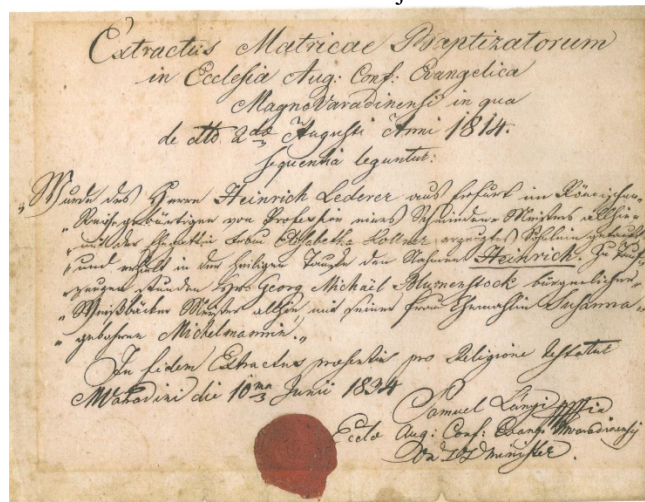 Extractus Matricae Baptizatorum
in Ecclesia Aug: Conf: Evangelica
MagnoVaradinensi in qua
de dto 2da Augusti Anni 1814.
sequentia leguntur:
„Wurde des Herrn Heinrich Lederer aus Erfurt im Römischen
„Reich gebürtigen von Profession eines Schneider Meisters allhier
„mit der Ehegattin Frau Elisabetha Kollner erzeugtes Söhnlein getauft
„und erhielt in der heiligen Taufe den Nahmen Heinrich. Zu Tauf-
zeugen stunden Georg Michael Blumenstock bürgerlicher
„Weißbäcker Meister allhier, mit seiner Frau Gemahlin Susanna
„gebohrne Michelmannin.„
In fidem Extractus praesentis pro Religione testatur
MVaradini die 10ma Junii 1834
Samuel
Eccla Aug: Conf: Evang: MVaradinensis
Minister.